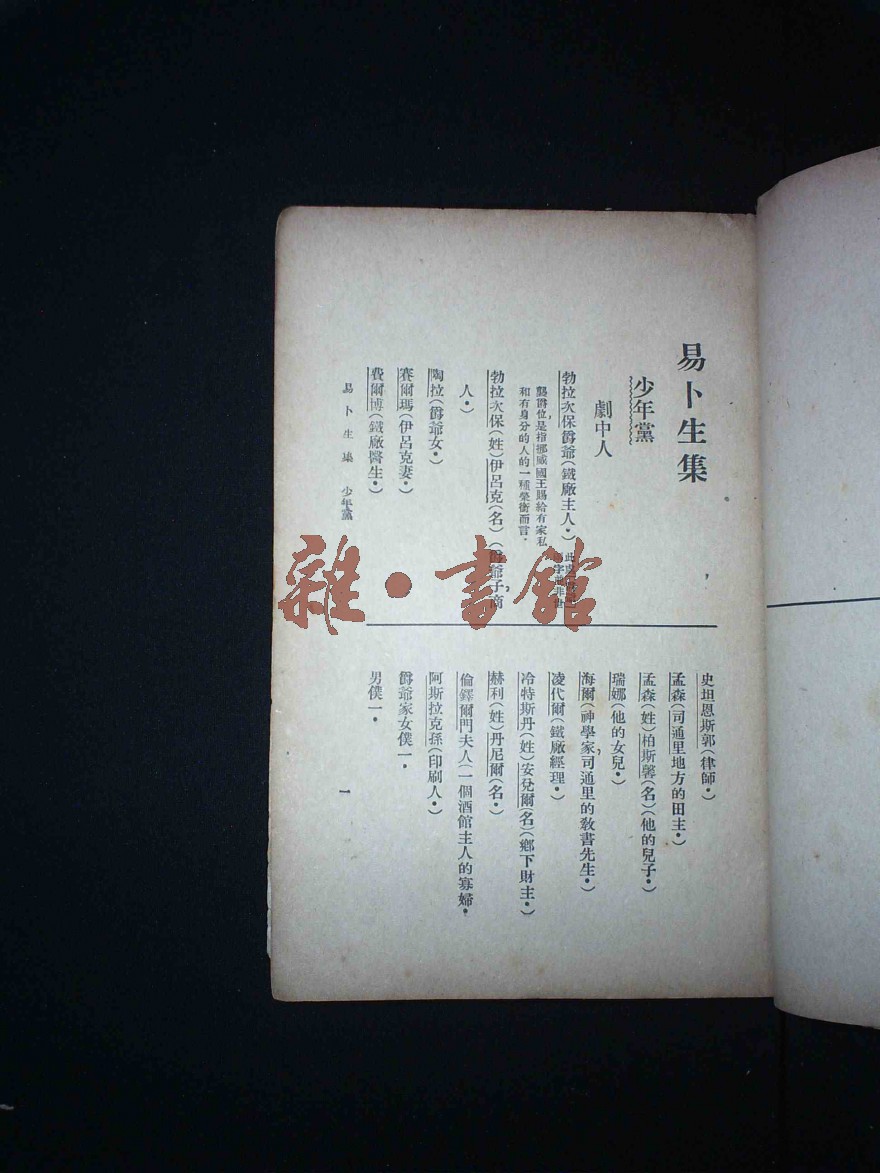 易卜生集
少年黨
劇中人
勃拉次保爵爺(鐵廠主人•)
襲爵位,是指挪威國王賜給有家私
和有身分的人的一種榮銜而言.
勃拉次保(姓)伊呂克(名)(爵爺子,商
人•)
陶拉(爵爺女•)
賽爾瑪(伊呂克妻•)
費爾博(鐵廠醫生•)
史坦恩斯郭(律師•)
孟森(司通里地方的田主•)
孟森(姓)柏斯馨(名)(他的兒子•)
瑞娜(他的女兒•)
海爾(神學家,司通里的教書先生•)
凌代爾(鐵廠經理•)
冷特斯丹(姓)安兌爾(名)(鄉下財主•)
赫利(姓)丹尼爾(名•)
倫鐸爾門夫人(一個酒館主人的寡婦•
阿斯拉克孫(印刷人•)
爵爺家女僕一•
男僕一•
易卜生集 少年黨
一
雜•書館